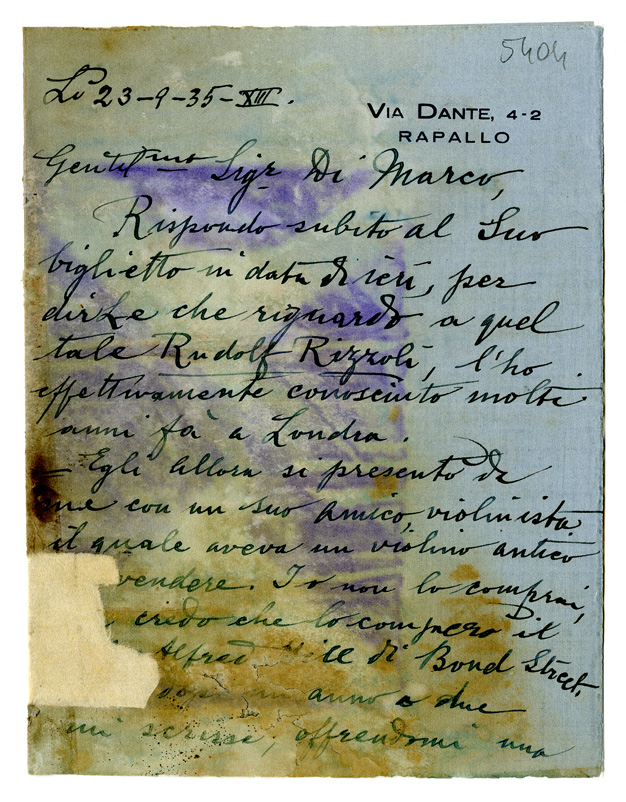 5404
Lì 23-9-35-XIII.
VIA DANTE, 4-2
RAPALLO
Gentilmo Sigr Di Marco,
Rispondo subito al Suo
biglietto in data di ieri, per
dirLe che riguardo a quel
tale Rudolf Rizzoli, l'ho
effettivamente conosciuto molti
anni fà a Londra.
Egli allora si presentò da
me con un suo amico, violinista
il quale aveva un violino antico
vendere. Io non lo comprai,
credo che lo comperò il
Alfred di Bond Street.
un anno o due
mi scrisse, offrendomi una